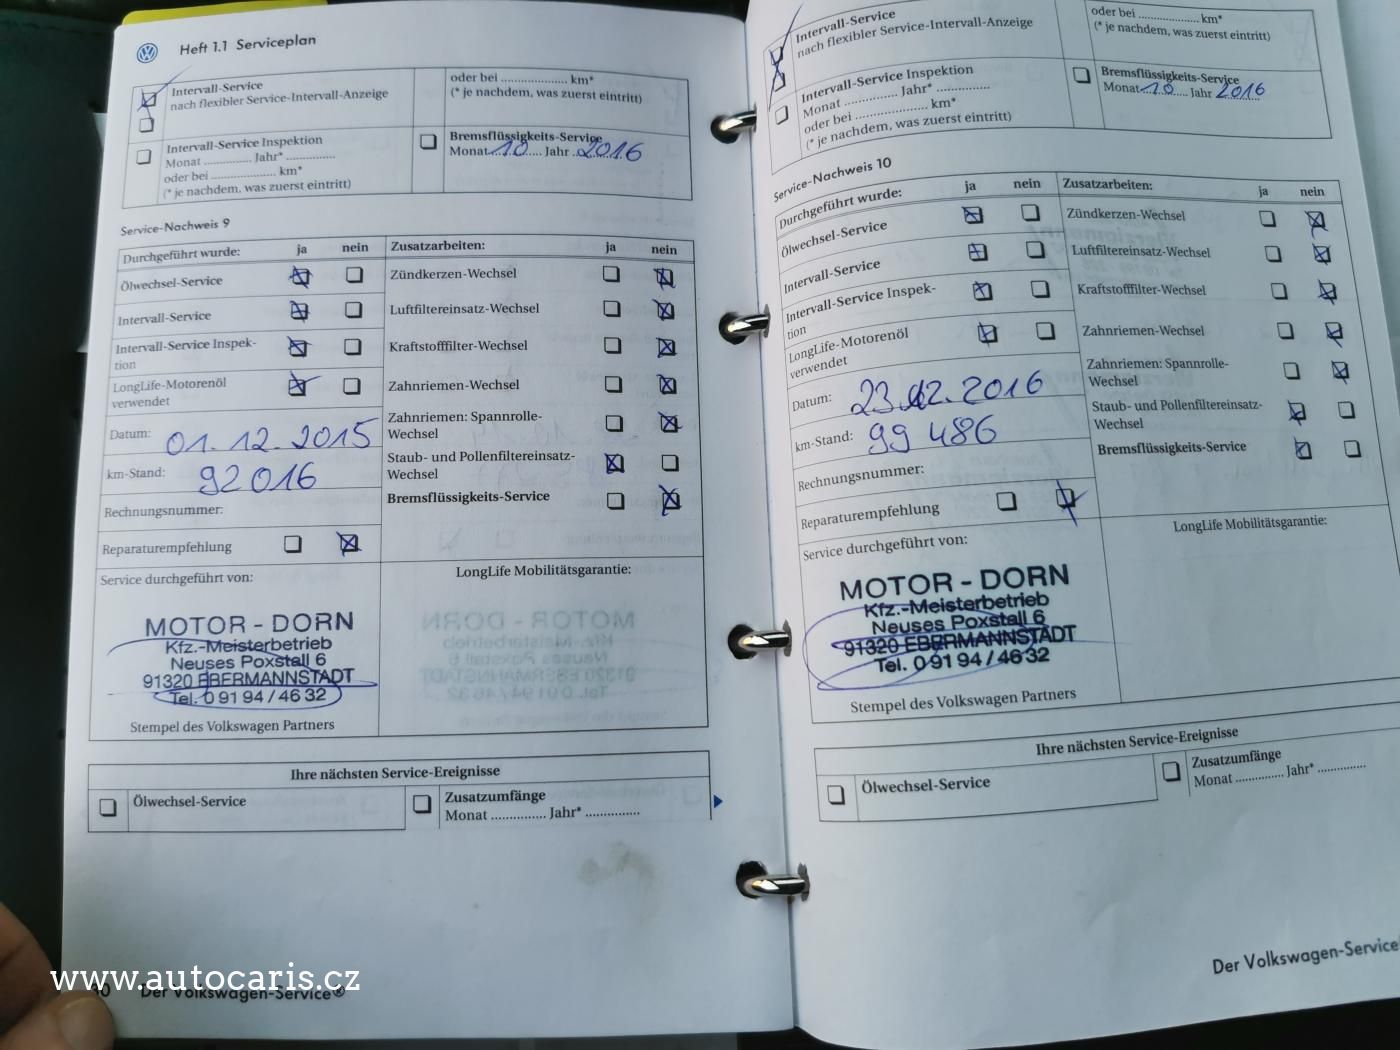 Heft 1.1 Serviceplan
Intervall-Service
nach flexibler Service-Intervall-Anzeige
oder bei .................... km*
(* je nachdem, was zuerst eintritt)
Intervall-Service Inspektion
Monat .............. Jahr* ..............
oder bei .................... km*
(* je nachdem, was zuerst eintritt)
Bremsflüssigkeits-Service
Monat 10 Jahr 2016
Service-Nachweis 9
Durchgeführt wurde: ja nein
Ölwechsel-Service
Intervall-Service
Intervall-Service Inspek-
tion
LongLife-Motorenöl
verwendet
Datum: 01.12.2015
km-Stand: 92016
Rechnungsnummer:
Reparaturempfehlung
Zusatzarbeiten: ja nein
Zündkerzen-Wechsel
Luftfiltereinsatz-Wechsel
Kraftstofffilter-Wechsel
Zahnriemen-Wechsel
Zahnriemen: Spannrolle-
Wechsel
Staub- und Pollenfiltereinsatz-
Wechsel
Bremsflüssigkeits-Service
Service durchgeführt von:
MOTOR - DORN
Kfz.-Meisterbetrieb
Neuses Poxstall 6
91320 EBERMANNSTADT
Tel. 0 91 94 / 46 32
Stempel des Volkswagen Partners
LongLife Mobilitätsgarantie:
Ihre nächsten Service-Ereignisse
Ölwechsel-Service
Zusatzumfänge
Monat .............. Jahr* ..............
Der Volkswagen-Service®
Intervall-Service
nach flexibler Service-Intervall-Anzeige
oder bei .................... km*
(* je nachdem, was zuerst eintritt)
Intervall-Service Inspektion
Monat .............. Jahr* ..............
oder bei .................... km*
(* je nachdem, was zuerst eintritt)
Bremsflüssigkeits-Service
Monat 10 Jahr 2016
Service-Nachweis 10
Durchgeführt wurde: ja nein
Ölwechsel-Service
Intervall-Service
Intervall-Service Inspek-
tion
LongLife-Motorenöl
verwendet
Datum: 23.12.2016
km-Stand: 99 486
Rechnungsnummer:
Reparaturempfehlung
Zusatzarbeiten: ja nein
Zündkerzen-Wechsel
Luftfiltereinsatz-Wechsel
Kraftstofffilter-Wechsel
Zahnriemen-Wechsel
Zahnriemen: Spannrolle-
Wechsel
Staub- und Pollenfiltereinsatz-
Wechsel
Bremsflüssigkeits-Service
Service durchgeführt von:
MOTOR - DORN
Kfz.-Meisterbetrieb
Neuses Poxstall 6
91320 EBERMANNSTADT
Tel. 0 91 94 / 46 32
Stempel des Volkswagen Partners
LongLife Mobilitätsgarantie:
Ihre nächsten Service-Ereignisse
Ölwechsel-Service
Zusatzumfänge
Monat .............. Jahr* ..............
Der Volkswagen-Service
www.autocaris.cz